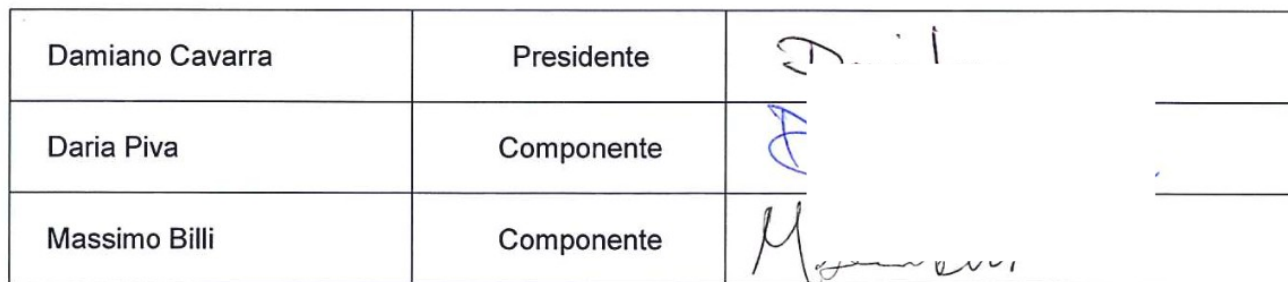 Damiano Cavarra Presidente
Daria Piva Componente
Massimo Billi Componente